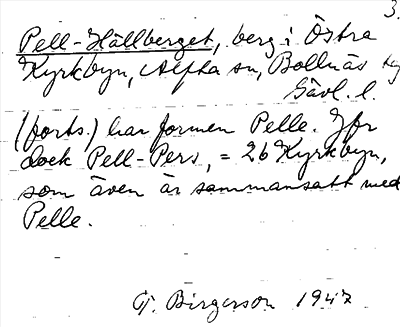 3.
Pell-Hällberget, berg i Östra
Kyrkbyn, Alfta sn, Bollnäs tg
Gävl. l.
(forts.) har formen Pelle. Jfr
dock Pell-Pers, = 26 Kyrkbyn,
som även är sammansatt med
Pelle.
G. Birgerson 1947